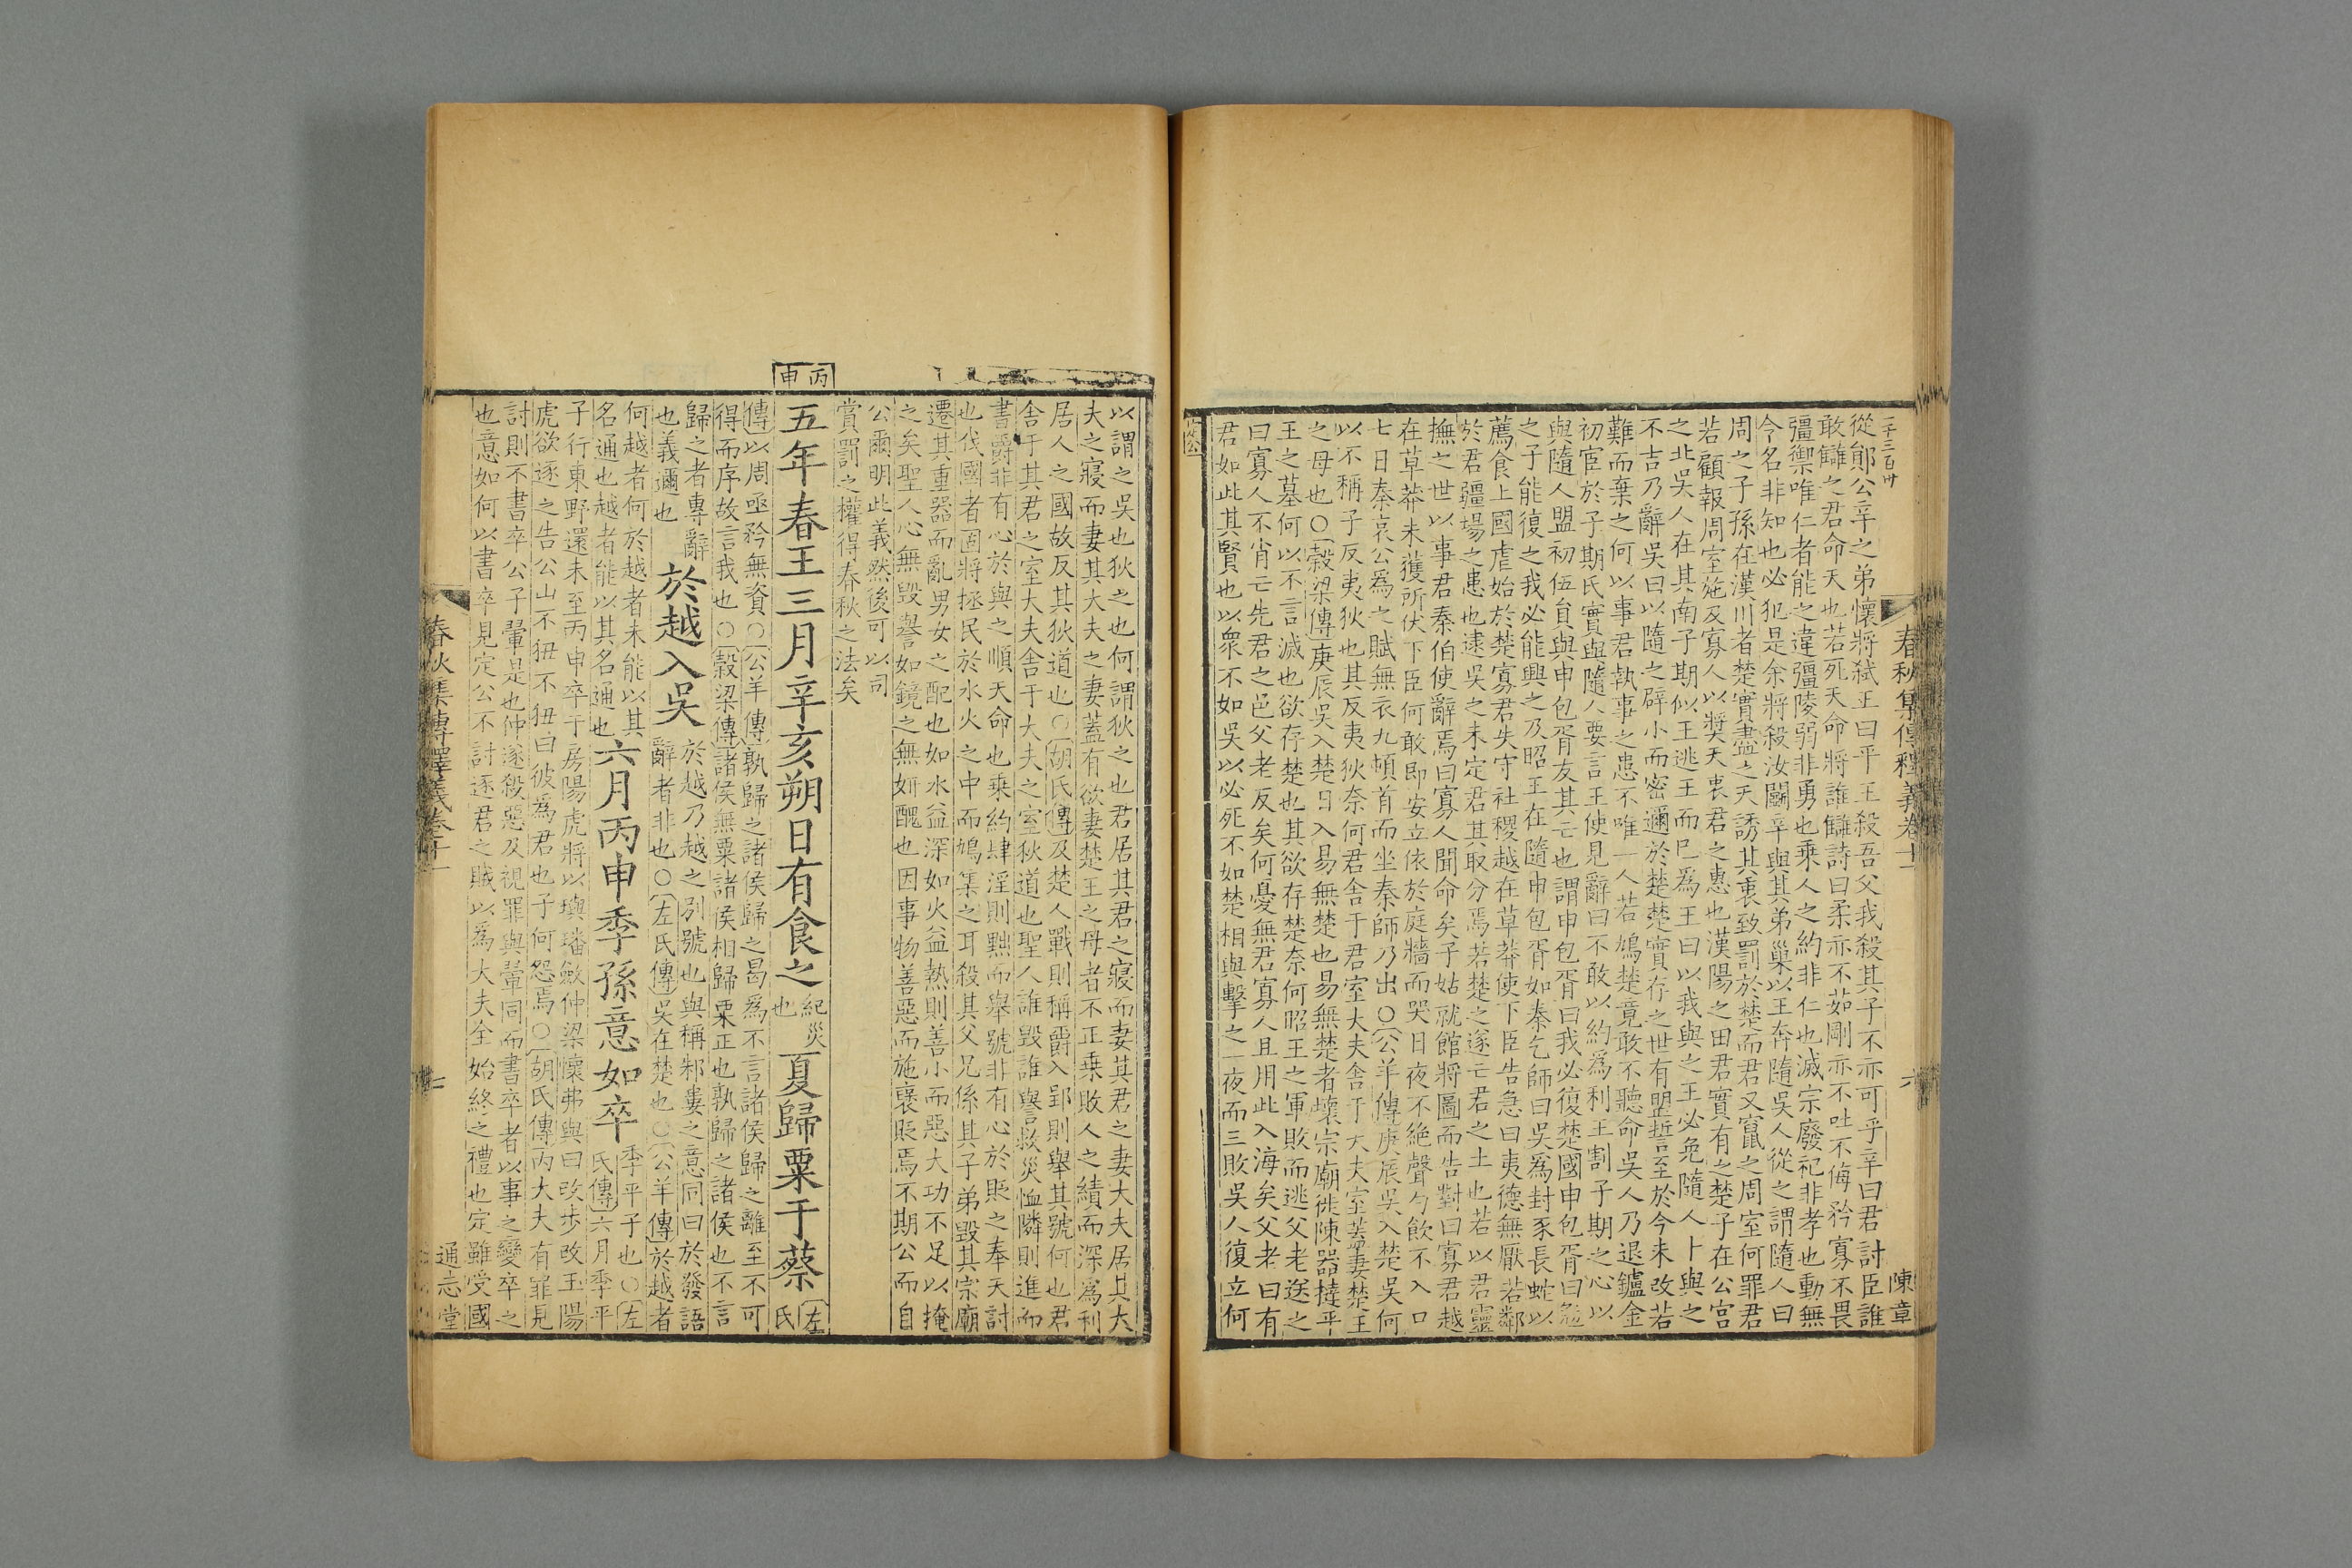 一千三百卅
春秋集傳釋義卷十一 六 陳章
從鄖公辛之弟懷將弑王曰平王殺吾父我殺其子不亦可乎辛曰君討臣誰
敢讎之君命天也若死天命將誰讎詩曰柔亦不茹剛亦不吐不侮矜寡不畏
彊禦唯仁者能之違彊陵弱非勇也乗人之約非仁也滅宗廢祀非孝也動無
令名非知也必犯是余將殺汝鬭辛與其弟巢以王奔隨吳人從之謂隨人曰
周之子孫在漢川者楚實盡之天誘其衷致罰於楚而君又竄之周室何罪君
若顧報周室施及寡人以奬天衷君之惠也漢陽之田君實有之楚子在公宮
之北吳人在其南子期似王逃王而已為王曰以我與之王必免隨人卜與之
不吉乃辭吳曰以隨之辟小而密邇於楚楚實存之世有盟誓至於今未改若
難而棄之何以事君執事之患不唯一人若鳩楚竟敢不聽命吳人乃退鑪金
初宦於子期氏實與隨人要言王使見辭曰不敢以約為利王割子期之心以
與隨人盟初伍貟與申包胥友其亡也謂申包胥曰我必復楚國申包胥曰勉
之子能復之我必能興之及昭王在隨申包胥如秦乞師曰吳為封豕長蛇以
薦食上國虐始於楚寡君失守社稷越在草莽使下臣告急曰夷德無厭若鄰
於君疆場之患也逮吳之未定君其取分焉若楚之遂亡君之土也若以君靈
撫之世以事君秦伯使辭焉曰寡人聞命矣子姑就館將圖而告對曰寡君越
在草莽未獲所伏下臣何敢即安立依於庭牆而哭日夜不絶聲勺飲不入口
七日秦哀公為之賦無衣九頓首而坐秦師乃出○公羊傳庚辰吳入楚吳何
以不稱子反夷狄也其反夷狄奈何君舍于君室大夫舍于大夫室蓋妻楚王
之母也○穀梁傳庚辰吳入楚日入易無楚也易無楚者壞宗廟徙陳器撻平
王之墓何以不言滅也欲存楚也其欲存楚奈何昭王之軍敗而逃父老送之
曰寡人不肖亡先君之邑父老反矣何憂無君寡人且用此入海矣父老曰有
君如此其賢也以衆不如吳以必死不如楚相與擊之一夜而三敗吳人復立何
定公
以謂之吳也狄之也何謂狄之也君居其君之寢而妻其君之妻大夫居其大
夫之寢而妻其大夫之妻蓋有欲妻楚王之母者不正乗敗人之績而深為利
居人之國故反其狄道也○胡氏傳及楚人戰則稱爵入郢則舉其號何也君
舍于其君之室大夫舍于大夫之室狄道也聖人誰毀誰譽救災恤隣則進而
書爵非有心於與之順天命也乗約肆淫則黜而舉號非有心於貶之奉天討
也伐國者固將拯民於水火之中而鳩集之耳殺其父兄係其子弟毀其宗廟
遷其重器而亂男女之配也如水益深如火益熱則善小而惡大功不足以掩
之矣聖人心無毀譽如鏡之無妍醜也因事物善惡而施襃貶焉不期公而自
公爾明此義然後可以司
賞罰之權得春秋之法矣
丙申
五年春王三月辛亥朔日有食之
紀災
也
夏歸粟于蔡
左
氏
傳以周亟矜無資○公羊傳孰歸之諸侯歸之曷為不言諸侯歸之離至不可
得而序故言我也○穀梁傳諸侯無粟諸侯相歸粟正也孰歸之諸侯也不言
歸之者專辭
也義邇也
於越入吳
於越乃越之別號也與稱邾婁之意同曰於發語
辭者非也○左氏傳吳在楚也○公羊傳於越者
何越者何於越者未能以其
名通也越者能以其名通也
六月丙申季孫意如卒
季平子也○左
氏傳六月季平
子行東野還未至丙申卒于房陽虎將以璵璠斂仲梁懷弗與曰改步改玉陽
虎欲逐之告公山不狃不狃曰彼為君也子何怨焉○胡氏傳内大夫有罪見
討則不書卒公子翬是也仲遂殺惡及視罪與翬同而書卒者以事之變卒之
也意如何以書卒見定公不討逐君之賊以為大夫全始終之禮也定雖受國
春秋集傳釋義卷十一 七 通志堂